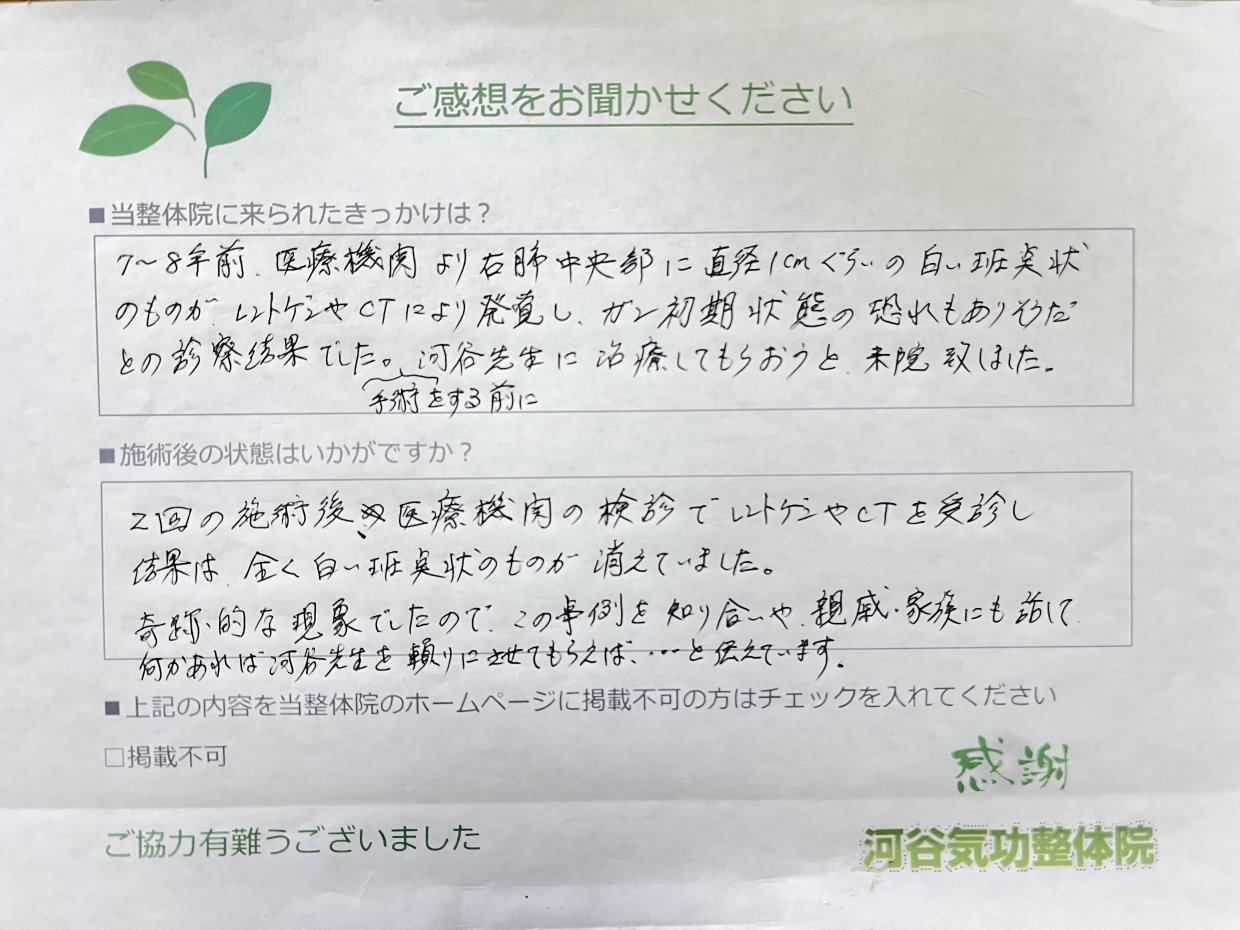 ご感想をお聞かせください
■当整体院に来られたきっかけは？
7〜8年前、医療機関より右肺中央部に直径1cmぐらいの白い班点状
のものが、レントゲンやCTにより発覚し、ガン初期状態の恐れもありそうだ
との診察結果でした。河谷先生に治療してもらおうと、来院致しました。
手術をする前に
■施術後の状態はいかがですか？
2回の施術後、医療機関の検診でレントゲンやCTを受診し
結果は、全く白い班点状のものが消えていました。
奇跡的な現象でしたので、この事例を知り合いや、親戚・家族にも話して、
何かあれば河谷先生を頼りにさせてもらえば、…と伝えています。
■上記の内容を当整体院のホームページに掲載不可の方はチェックを入れてください
□掲載不可
感謝
ご協力有難うございました
河谷気功整体院